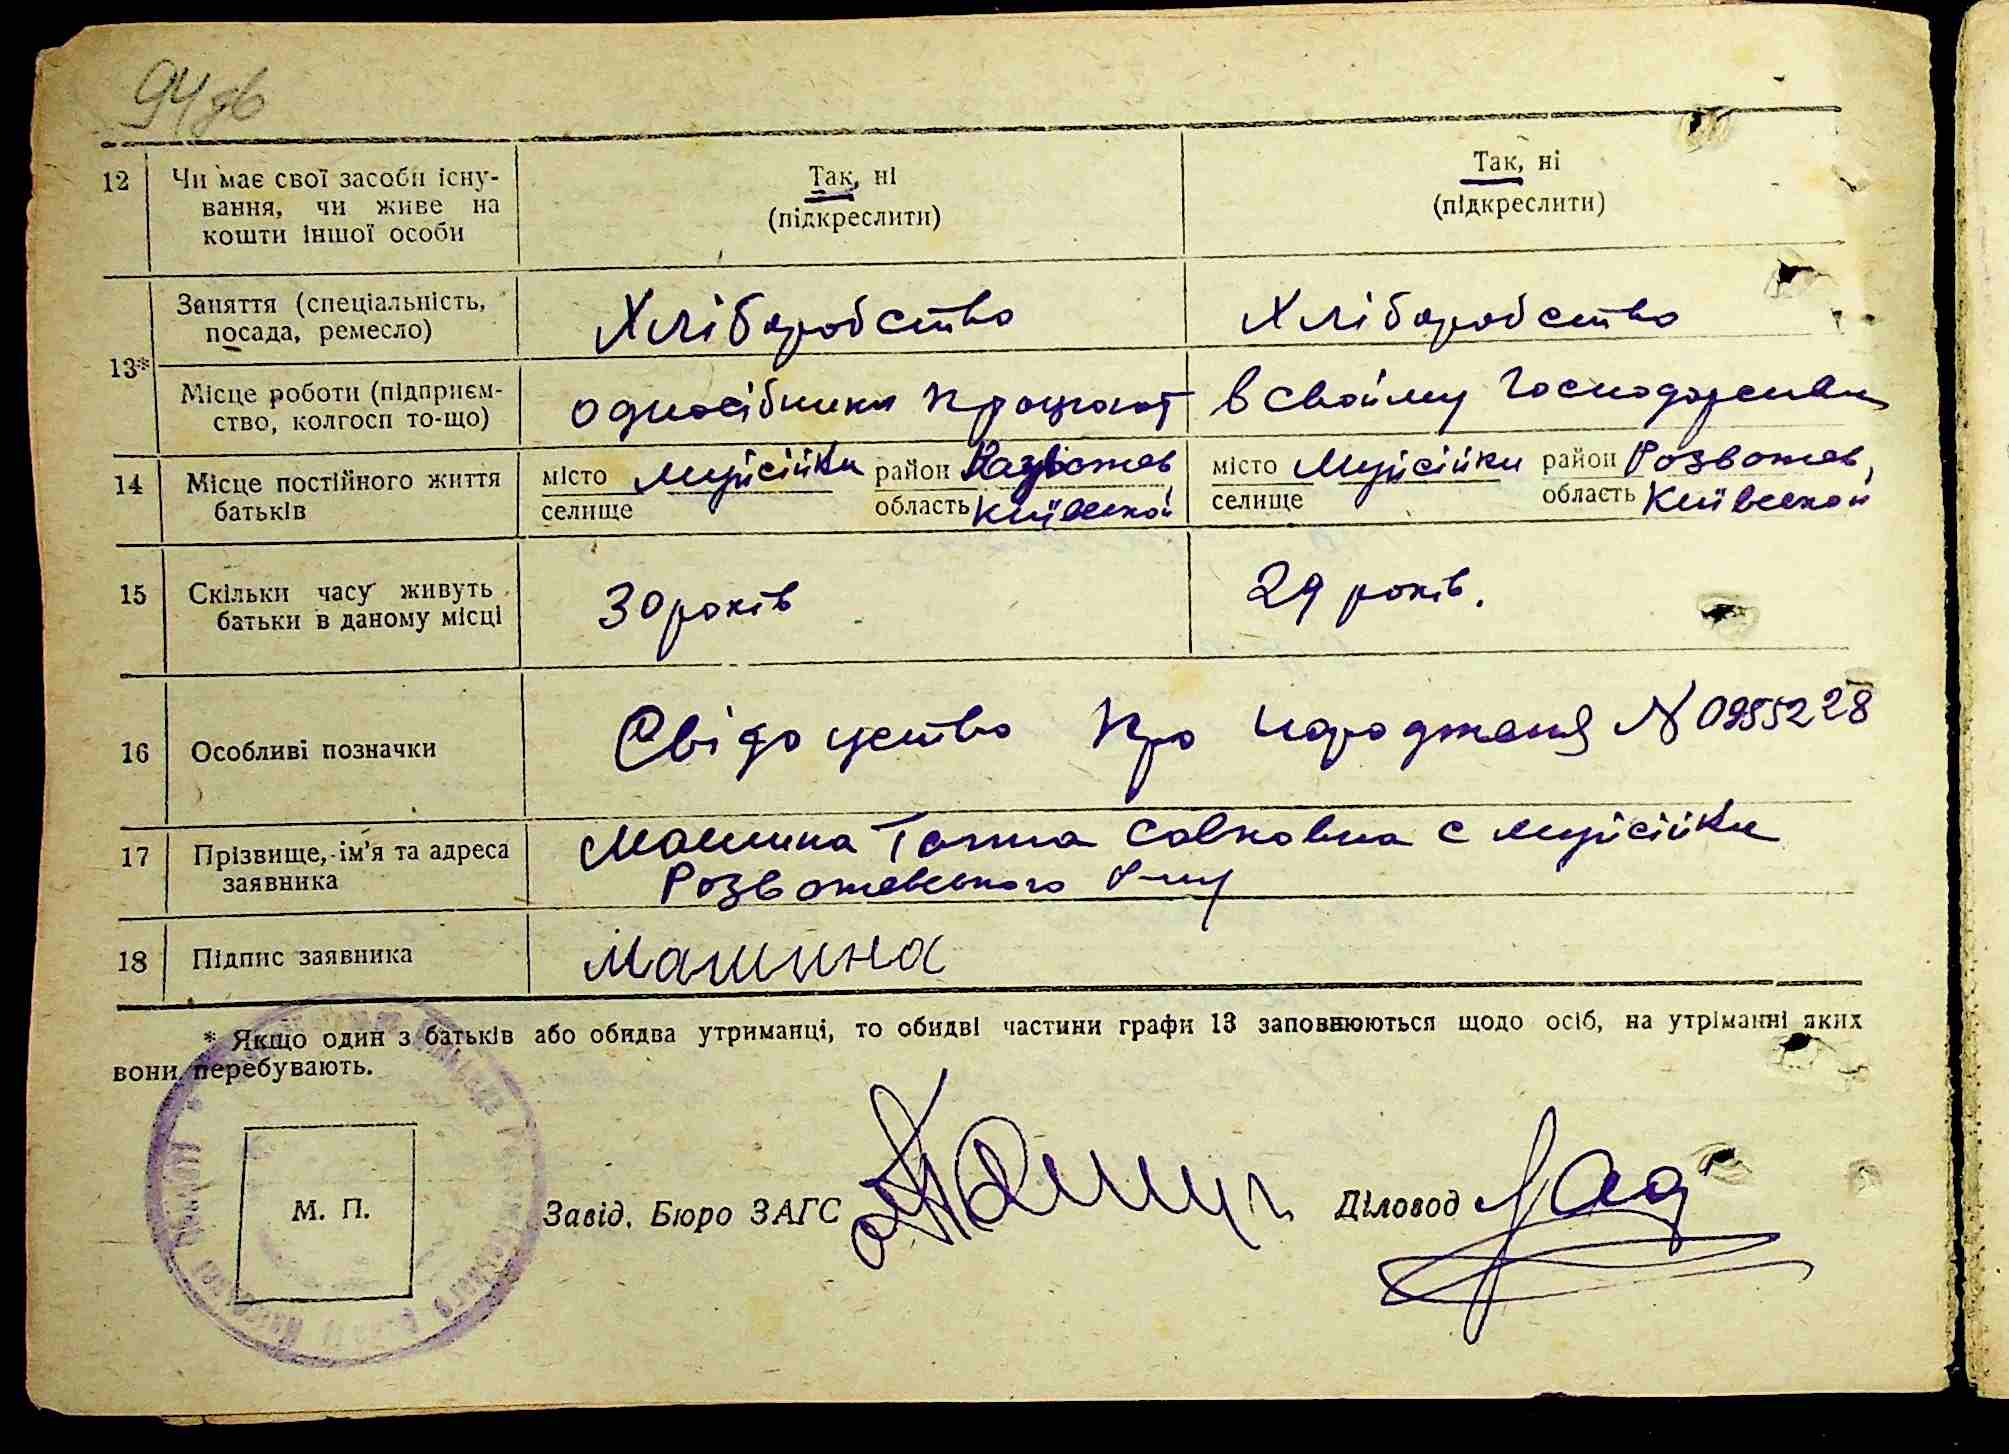 94 зв
12 Чи має свої засоби існу- Так, ні Так, ні
вання, чи живе на (підкреслити) (підкреслити)
кошти іншої особи
13* Заняття (спеціальність, Хліборобство Хліборобство
посада, ремесло)
Місце роботи (підприєм- односібники працюют в своійму господарстви
ство, колгосп то-що)
14 Місце постійного життя місто Мусійки район Розважев місто Мусійки район Розважев,
батьків селище область Київской селище область Київской
15 Скільки часу живуть 30 років 29 років.
батьки в даному місці
16 Особливі позначки Свідоцство про народженя N 0955228
17 Прізвище, ім'я та адреса Машина Ганна Савковна с Мусійки
заявника Розважевського р-ну
18 Підпис заявника Машина
* Якщо один з батьків або обидва утриманці, то обидві частини графи 13 заповнюються щодо осіб, на утріманні яких
вони перебувають.
М. П.
Завід. Бюро ЗАГС Діловод